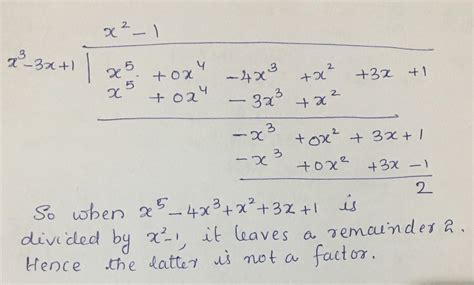 x² - 1
x³ - 3x + 1 | x⁵ + 0x⁴ - 4x³ + x² + 3x + 1
x⁵ + 0x⁴ - 3x³ + x²
-x³ + 0x² + 3x + 1
-x³ + 0x² + 3x - 1
2
So when x⁵ - 4x³ + x² + 3x + 1 is
divided by x² - 1, it leaves a remainder 2.
Hence the latter is not a factor.